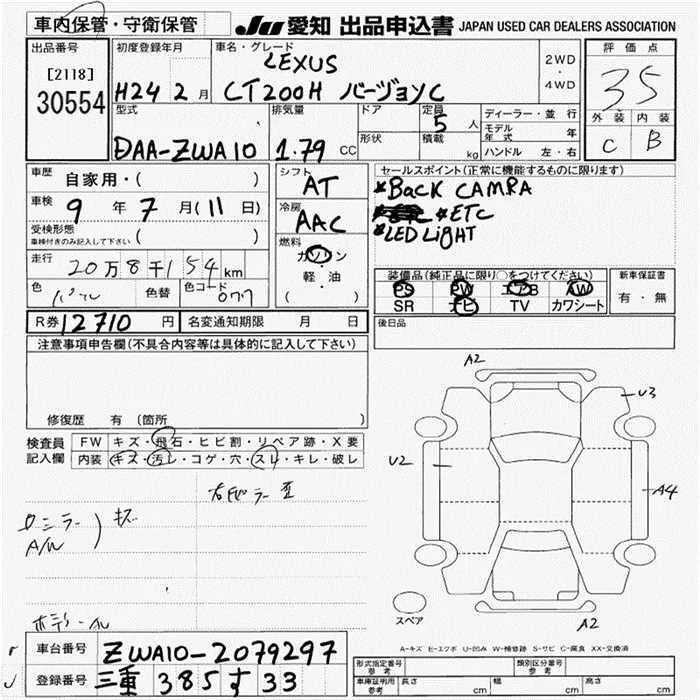 車内保管・守衛保管
JU 愛知 出品申込書 JAPAN USED CAR DEALERS ASSOCIATION
出品番号
[2118]
30554
初度登録年月
H24 2 月
車名・グレード
LEXUS
CT200H バージョンC
2WD
・
4WD
評価点
35
外装 内装
C B
型式
DAA-ZWA10
排気量
1.79 CC
ドア
形状
定員
5 人
積載
kg
ディーラー・並行
モデル年式 年
ハンドル 左・右
車歴
自家用・( )
車検
9 年 7 月 (11 日)
受検形態
車検付きのみ記入して下さい ( )
走行
20万8千154km
色
色替
色コード
077
シフト
AT
冷房
AAC
燃料
ガソリン
・
軽・油
( )
セールスポイント(正常に機能するものに限ります)
*BACK CAMRA
*ETC
*LED LiGHT
装備品(純正品に限り○をつけてください)
PS PW エアB AW
SR ナビ TV カワシート
新車保証書
有・無
後日品
R券 12710 円
名変通知期限 月 日
注意事項申告欄(不具合内容等は具体的に記入して下さい)
修復歴 有 (箇所 )
検査員
記入欄
FW キズ・飛石・ヒビ割・リペア跡・X要
内装 キズ・汚レ・コゲ・穴・スレ・キレ・破レ
右ピラー
A/W
A2
U3
U2
A4
A2
スペア
A-キズ E-エクボ U-凹み W-補修跡 S-サビ C-腐食 XX-交換済
車台番号 ZWA10-2079297
登録番号 三重 385 す 33
形式指定番号
参考
類別区分番号
参考
車庫証明用
参考
長さ cm 幅 cm 高さ cm